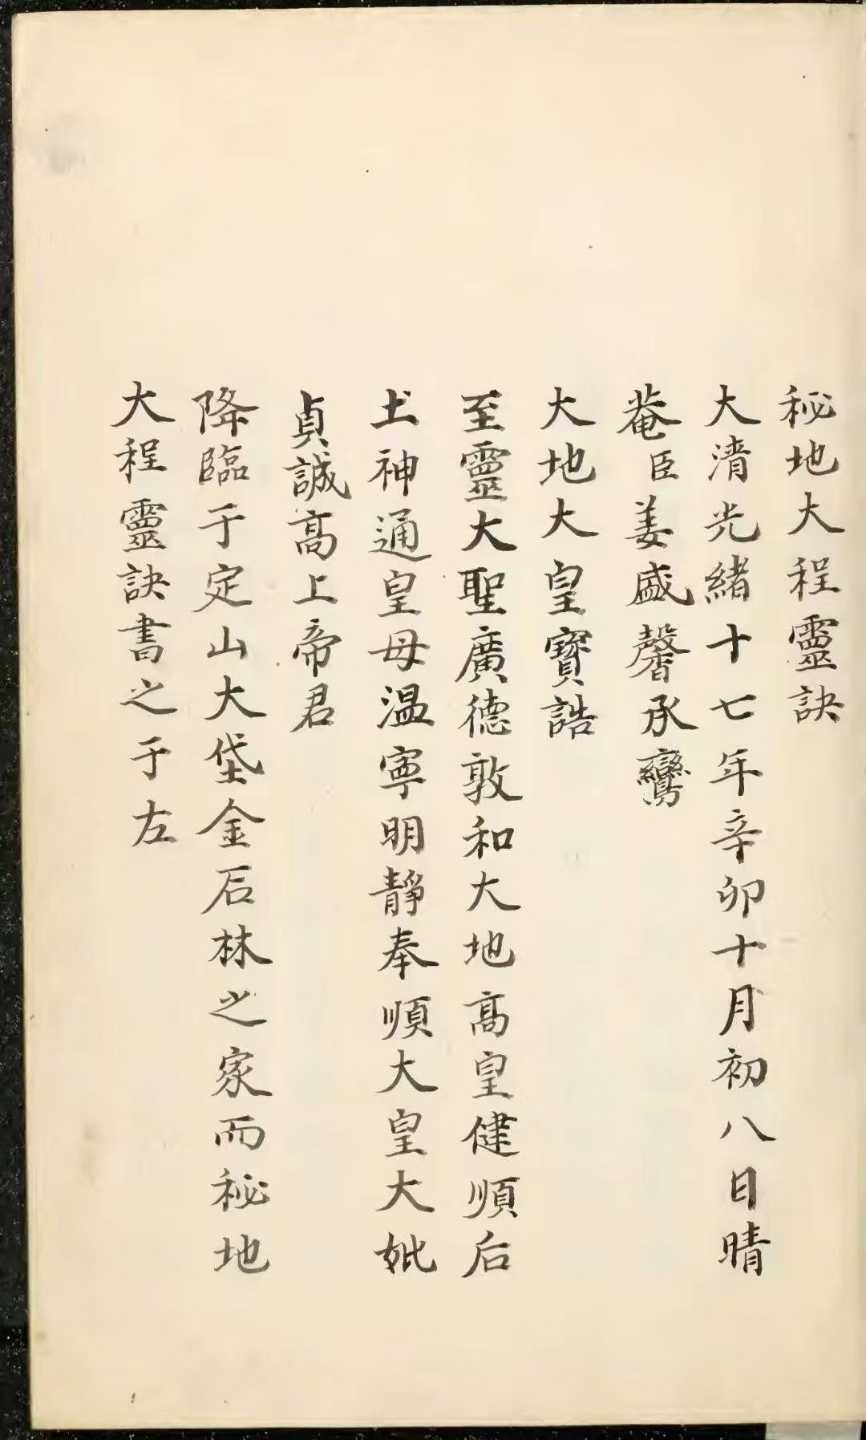 秘地大程靈訣
大清光緒十七年辛卯十月初八日晴
菴臣姜盛馨承鸞
大地大皇寶誥
至靈大聖廣德敦和大地高皇健順后
土神通皇母溫寧明靜奉順大皇大妣
貞誠高上帝君
降臨于定山大垈金石林之家而秘地
大程靈訣書之于左